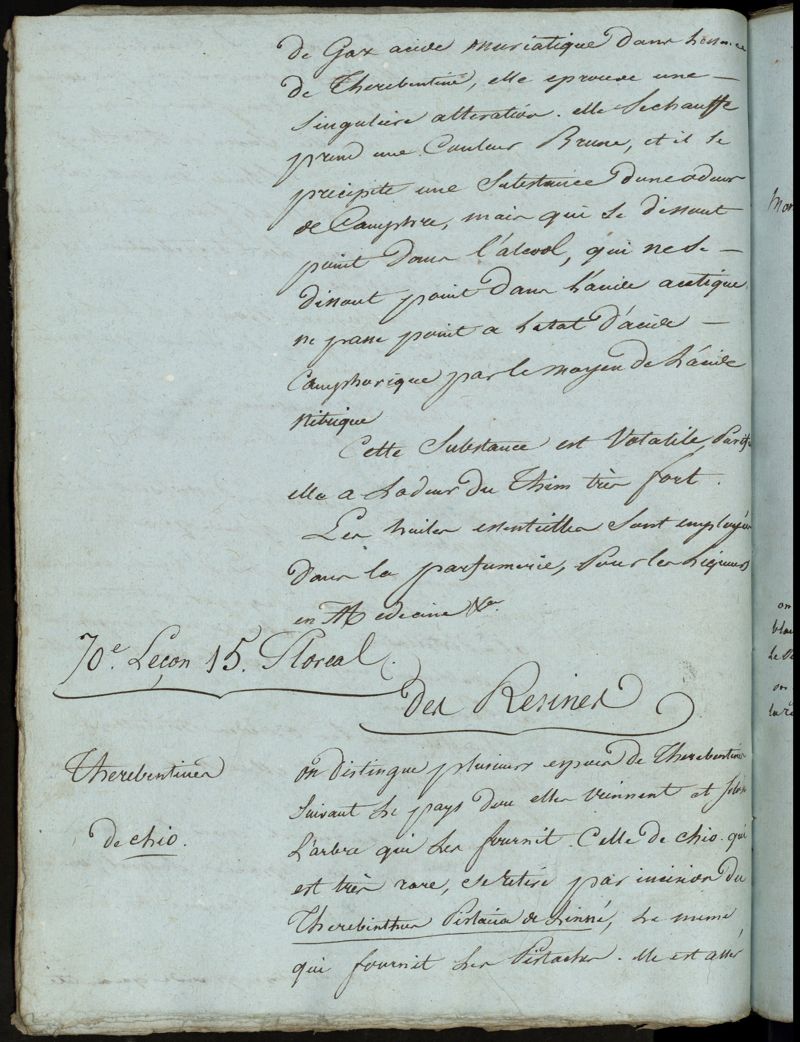 de Gaz acide muriatique dans lessence
de Therebentine, elle eprouve une —
singuliere alteration. elle Sechauffe
prend une Couleur Brune, et il se
précipite une Substance dune odeur
de Camphre, mais qui se dissout
point dans l'alcool, qui ne se —
dissout point dans l'acide acetique
ne passe point a letat d'acide —
Camphorique par le moyen de l'acide
Nitrique
Cette Substance est Volatile,
elle a lodeur du Thim très fort.
Les huiles essentielles sont employées
dans la parfumerie, Pour les liqueurs
en Medecine &a
70e. Leçon 15. Floreal.
des Resines
Therebentines
de chio.
on distingue plusieurs especes de Therebentine
suivant le pays dou elles viennent et selon
L'arbre qui les fournit. Celle de chio. qui
est très rare, se retire par incision du
Therebinthus Pistacia de Linné, le meme
qui fournit les Pistaches. elle est assez
mor
on
blan
le
on